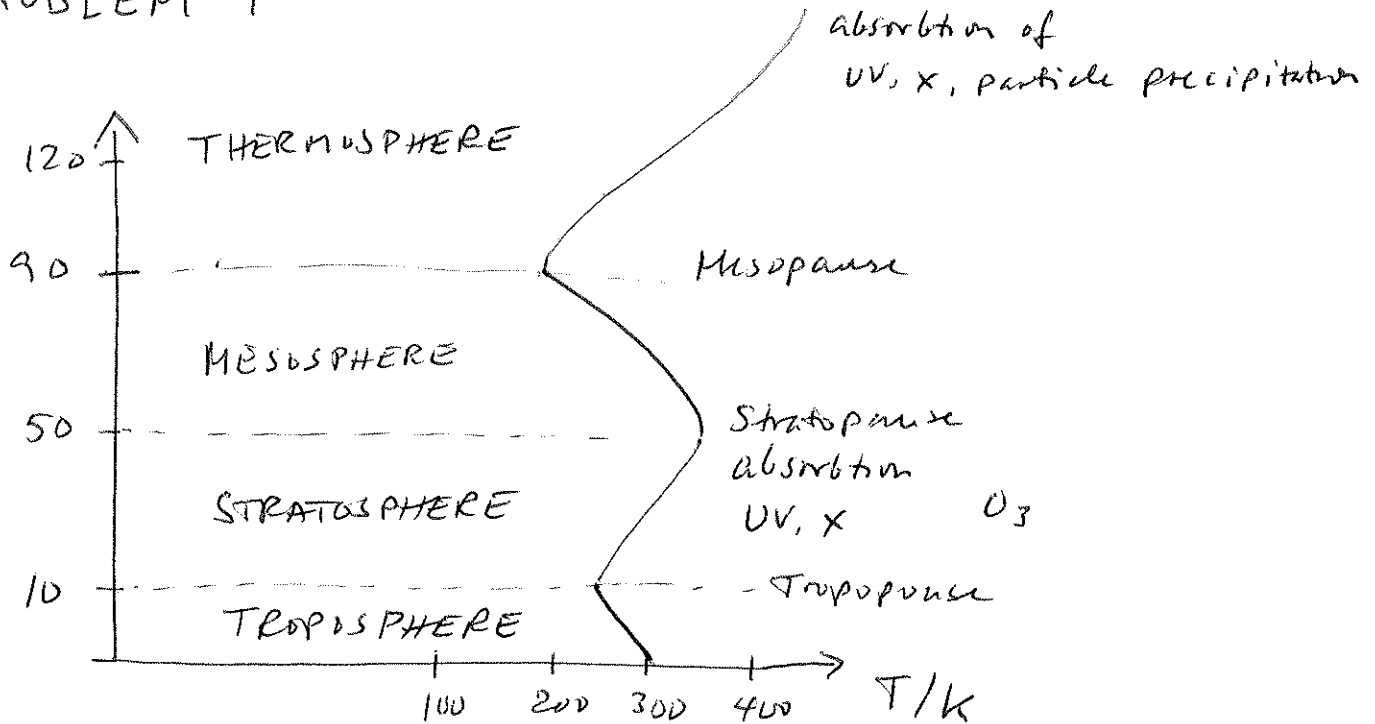 ROBLEM 1
absorbtion of
UV, X, particle precipitation
120 THERMOSPHERE
90 Mesopause
MESOSPHERE
50 Stratopause
absorbtion
STRATOSPHERE UV, X O3
10 Tropopause
TROPOSPHERE
100 200 300 400 T/K